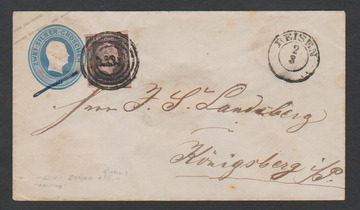 ZWEI SILBER-GROSCHEN
REISEN
2
3
Herrn J. S. Landsberg
Königsberg i/P.